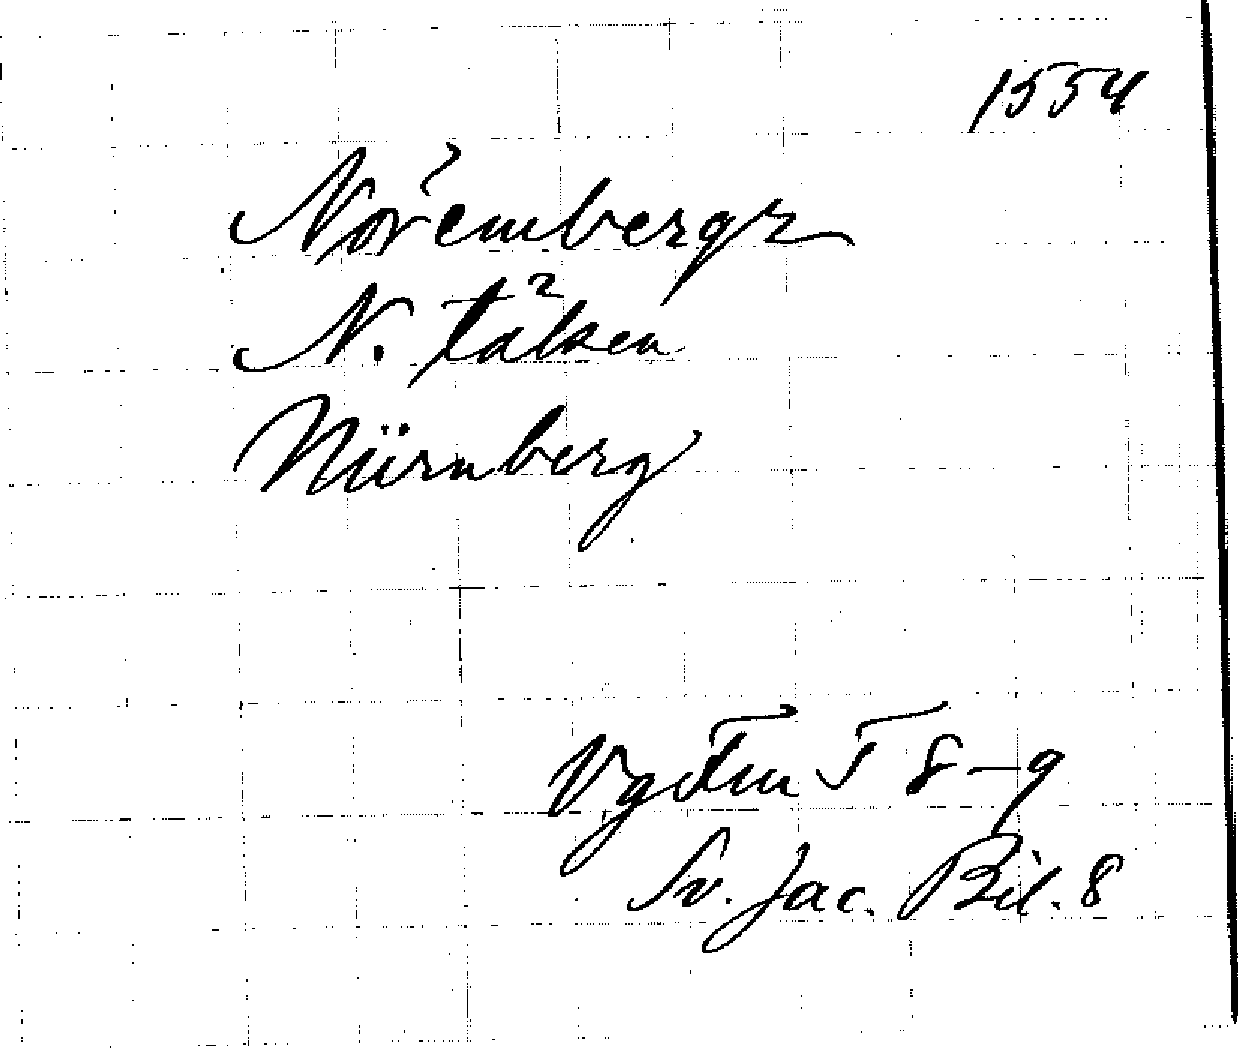 1554
Norembergz
N. tälsen
Nürnberg
Vg Fm T 8-9
Sv. Jac. Bil. 8